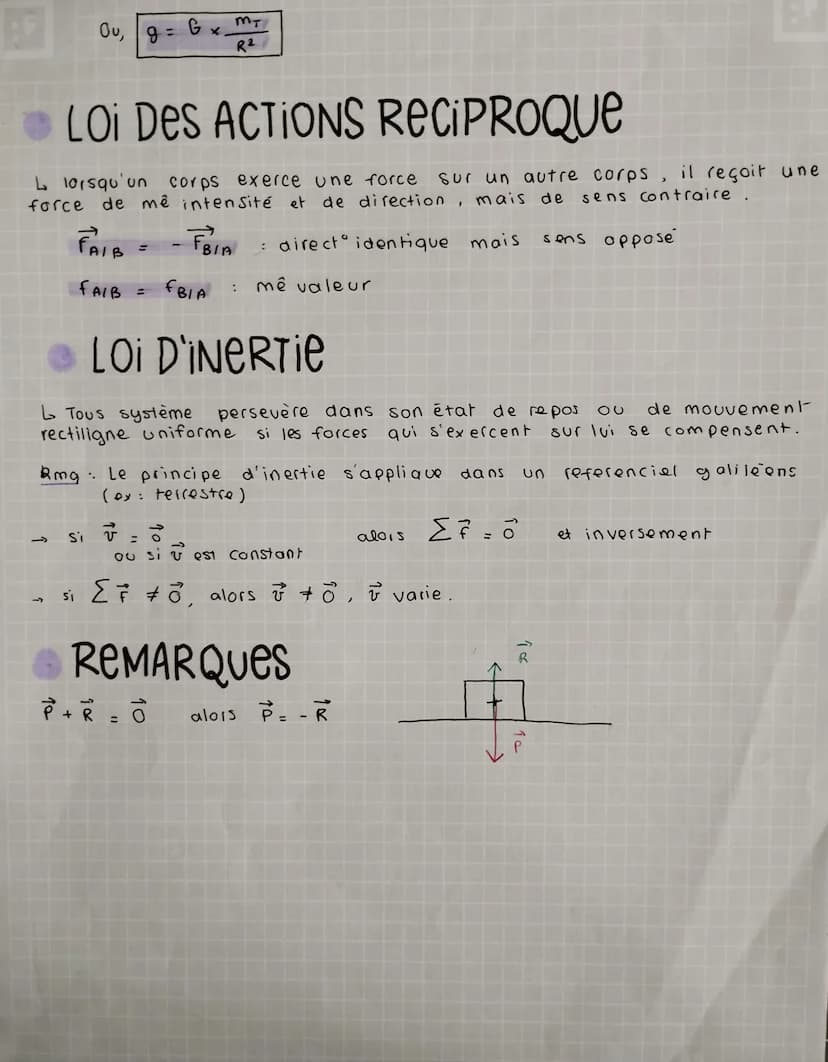 Ou, g = G x m_T / R²
LOI DES ACTIONS RECIPROQUE
↳ lorsqu'un corps exerce une force sur un autre corps, il reçoit une
force de mê intensité et de direction, mais de sens contraire.
F⃗A/B = - F⃗B/A : direct° identique mais sens opposé
fA/B = fB/A : mê valeur
LOI D'INERTIE
↳ Tous système persevère dans son état de repos ou de mouvement
rectiligne uniforme si les forces qui s'exercent sur lui se compensent.
Rmq : Le principe d'inertie s'applique dans un referenciel galiléens
(ex : terrestre)
→ si v⃗ = 0⃗ alors Σ F⃗ = 0⃗ et inversement
ou si v⃗ est constant
→ si Σ F⃗ ≠ 0⃗, alors v⃗ ≠ 0⃗, v⃗ varie.
REMARQUES
R⃗
P⃗ + R⃗ = 0⃗ alors P⃗ = - R⃗
P⃗